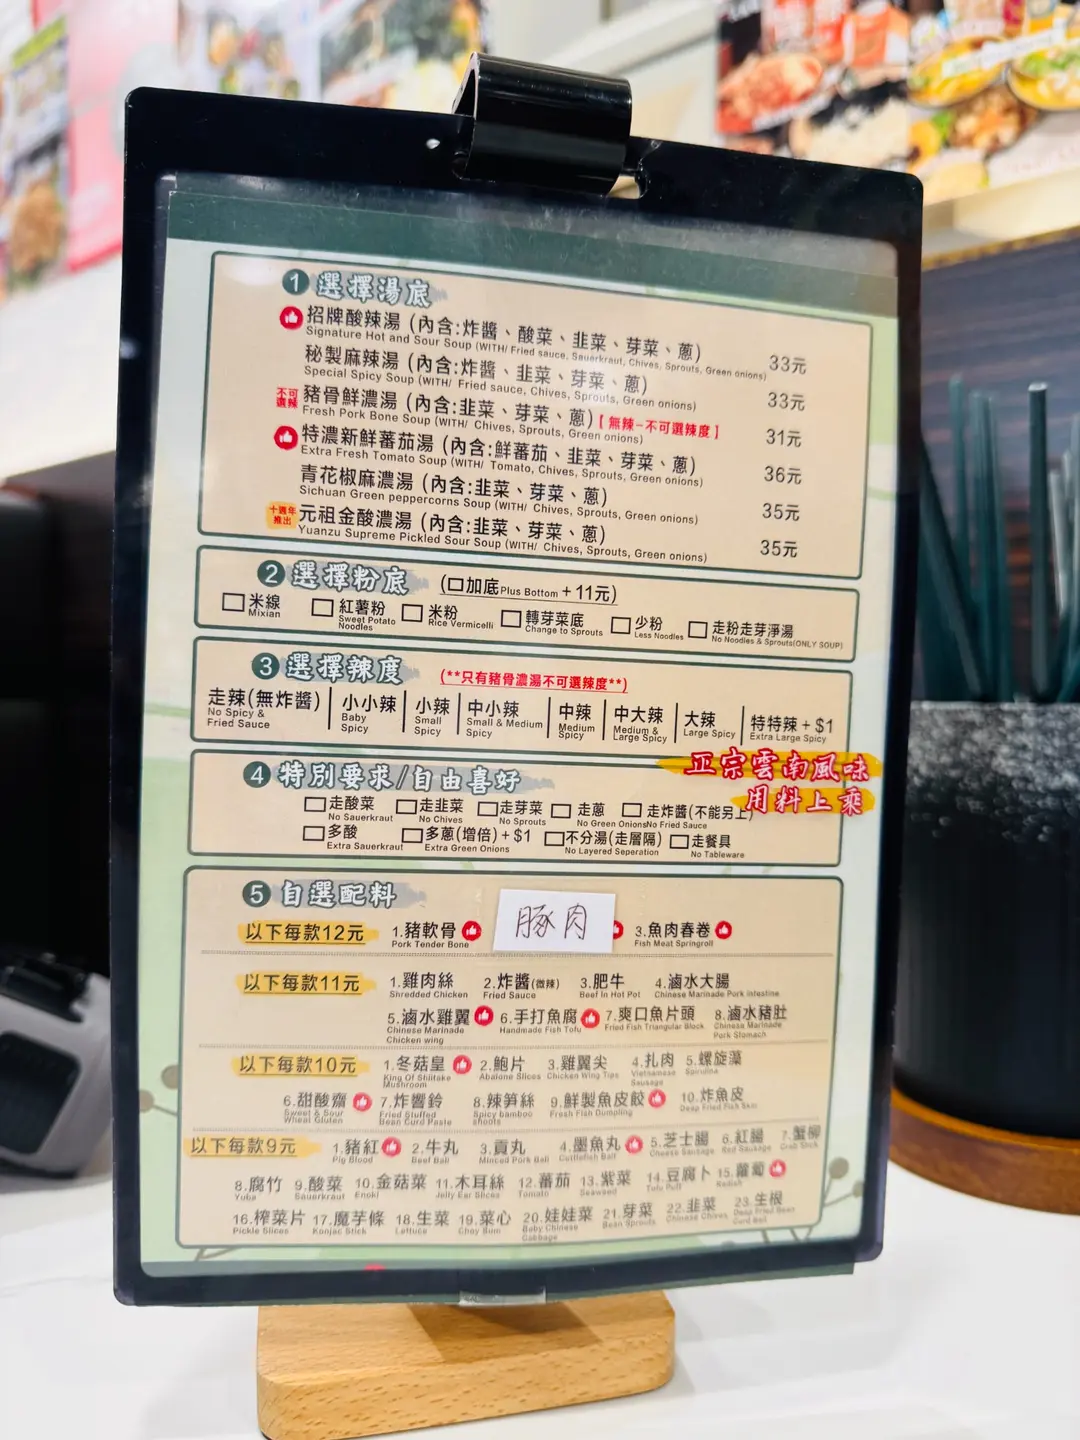 1 選擇湯底
招牌酸辣湯 (內含:炸醬、酸菜、韭菜、芽菜、蔥) 33元
Signature Hot and Sour Soup (WITH/ Fried sauce, Sauerkraut, Chives, Sprouts, Green onions)
秘製麻辣湯 (內含:炸醬、韭菜、芽菜、蔥) 33元
Special Spicy Soup (WITH/ Fried sauce, Chives, Sprouts, Green onions)
不可選辣 豬骨鮮濃湯 (內含:韭菜、芽菜、蔥)【無辣-不可選辣度】 31元
Fresh Pork Bone Soup (WITH/ Chives, Sprouts, Green onions)
特濃新鮮蕃茄湯 (內含:鮮蕃茄、韭菜、芽菜、蔥) 36元
Extra Fresh Tomato Soup (WITH/ Tomato, Chives, Sprouts, Green onions)
青花椒麻濃湯 (內含:韭菜、芽菜、蔥) 35元
Sichuan Green peppercorns Soup (WITH/ Chives, Sprouts, Green onions)
十週年推出 元祖金酸濃湯 (內含:韭菜、芽菜、蔥) 35元
Yuanzu Supreme Pickled Sour Soup (WITH/ Chives, Sprouts, Green onions)
2 選擇粉底 (□加底Plus Bottom + 11元)
□米線 □紅薯粉 □米粉 □轉芽菜底 □少粉 □走粉走芽淨湯
Mixian Sweet Potato Noodles Rice Vermicelli Change to Sprouts Less Noodles No Noodles & Sprouts(ONLY SOUP)
3 選擇辣度 (**只有豬骨濃湯不可選辣度**)
走辣(無炸醬) 小小辣 小辣 中小辣 中辣 中大辣 大辣 特特辣 + $1
No Spicy & Fried Sauce Baby Spicy Small Spicy Small & Medium Spicy Medium Spicy Medium & Large Spicy Large Spicy Extra Large Spicy
正宗雲南風味
用料上乘
4 特別要求/自由喜好
□走酸菜 □走韭菜 □走芽菜 □走蔥 □走炸醬(不能另上)
No Sauerkraut No Chives No Sprouts No Green Onions No Fried Sauce
□多酸 □多蔥(增倍) + $1 □不分湯(走層隔) □走餐具
Extra Sauerkraut Extra Green Onions No Layered Seperation No Tableware
5 自選配料
以下每款12元 1.豬軟骨 豚肉 3.魚肉春卷
Pork Tender Bone Fish Meat Springroll
以下每款11元 1.雞肉絲 2.炸醬(微辣) 3.肥牛 4.滷水大腸
Shredded Chicken Fried Sauce Beef In Hot Pot Chinese Marinade Pork Intestine
5.滷水雞翼 6.手打魚腐 7.爽口魚片頭 8.滷水豬肚
Chinese Marinade Chicken wing Handmade Fish Tofu Fried Fish Triangular Block Chinese Marinade Pork Stomach
以下每款10元 1.冬菇皇 2.鮑片 3.雞翼尖 4.扎肉 5.螺旋藻
King Of Shiitake Mushroom Abalone Slices Chicken Wing Tips Vietnamese Sausage Spirulina
6.甜酸齋 7.炸響鈴 8.辣筍絲 9.鮮製魚皮餃 10.炸魚皮
Sweet & Sour Wheat Gluten Fried Stuffed Bean Curd Paste Spicy bamboo shoots Fresh Fish Dumpling Deep Fried Fish Skin
以下每款9元 1.豬紅 2.牛丸 3.貢丸 4.墨魚丸 5.芝士腸 6.紅腸 7.蟹柳
Pig Blood Beef Ball Minced Pork Ball Cuttlefish Ball Cheese Sausage Red Sausage Crab Stick
8.腐竹 9.酸菜 10.金菇菜 11.木耳絲 12.蕃茄 13.紫菜 14.豆腐卜 15.蘿蔔
Yuba Sauerkraut Enoki Jelly Ear Slices Tomato Seaweed Tofu Puff Radish
16.榨菜片 17.魔芋條 18.生菜 19.菜心 20.娃娃菜 21.芽菜 22.韭菜 23.生根
Pickle Slices Konjac Stick Lettuce Choy Sum Baby Chinese Cabbage Bean Sprouts Chinese Chives Deep Fried Bean Curd Ball